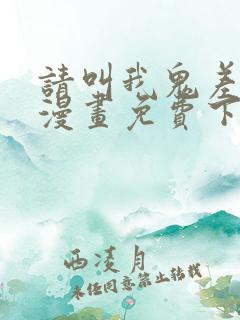 請叫我鬼差
漫畫免費下
西淩月
未任同意禁止轉載